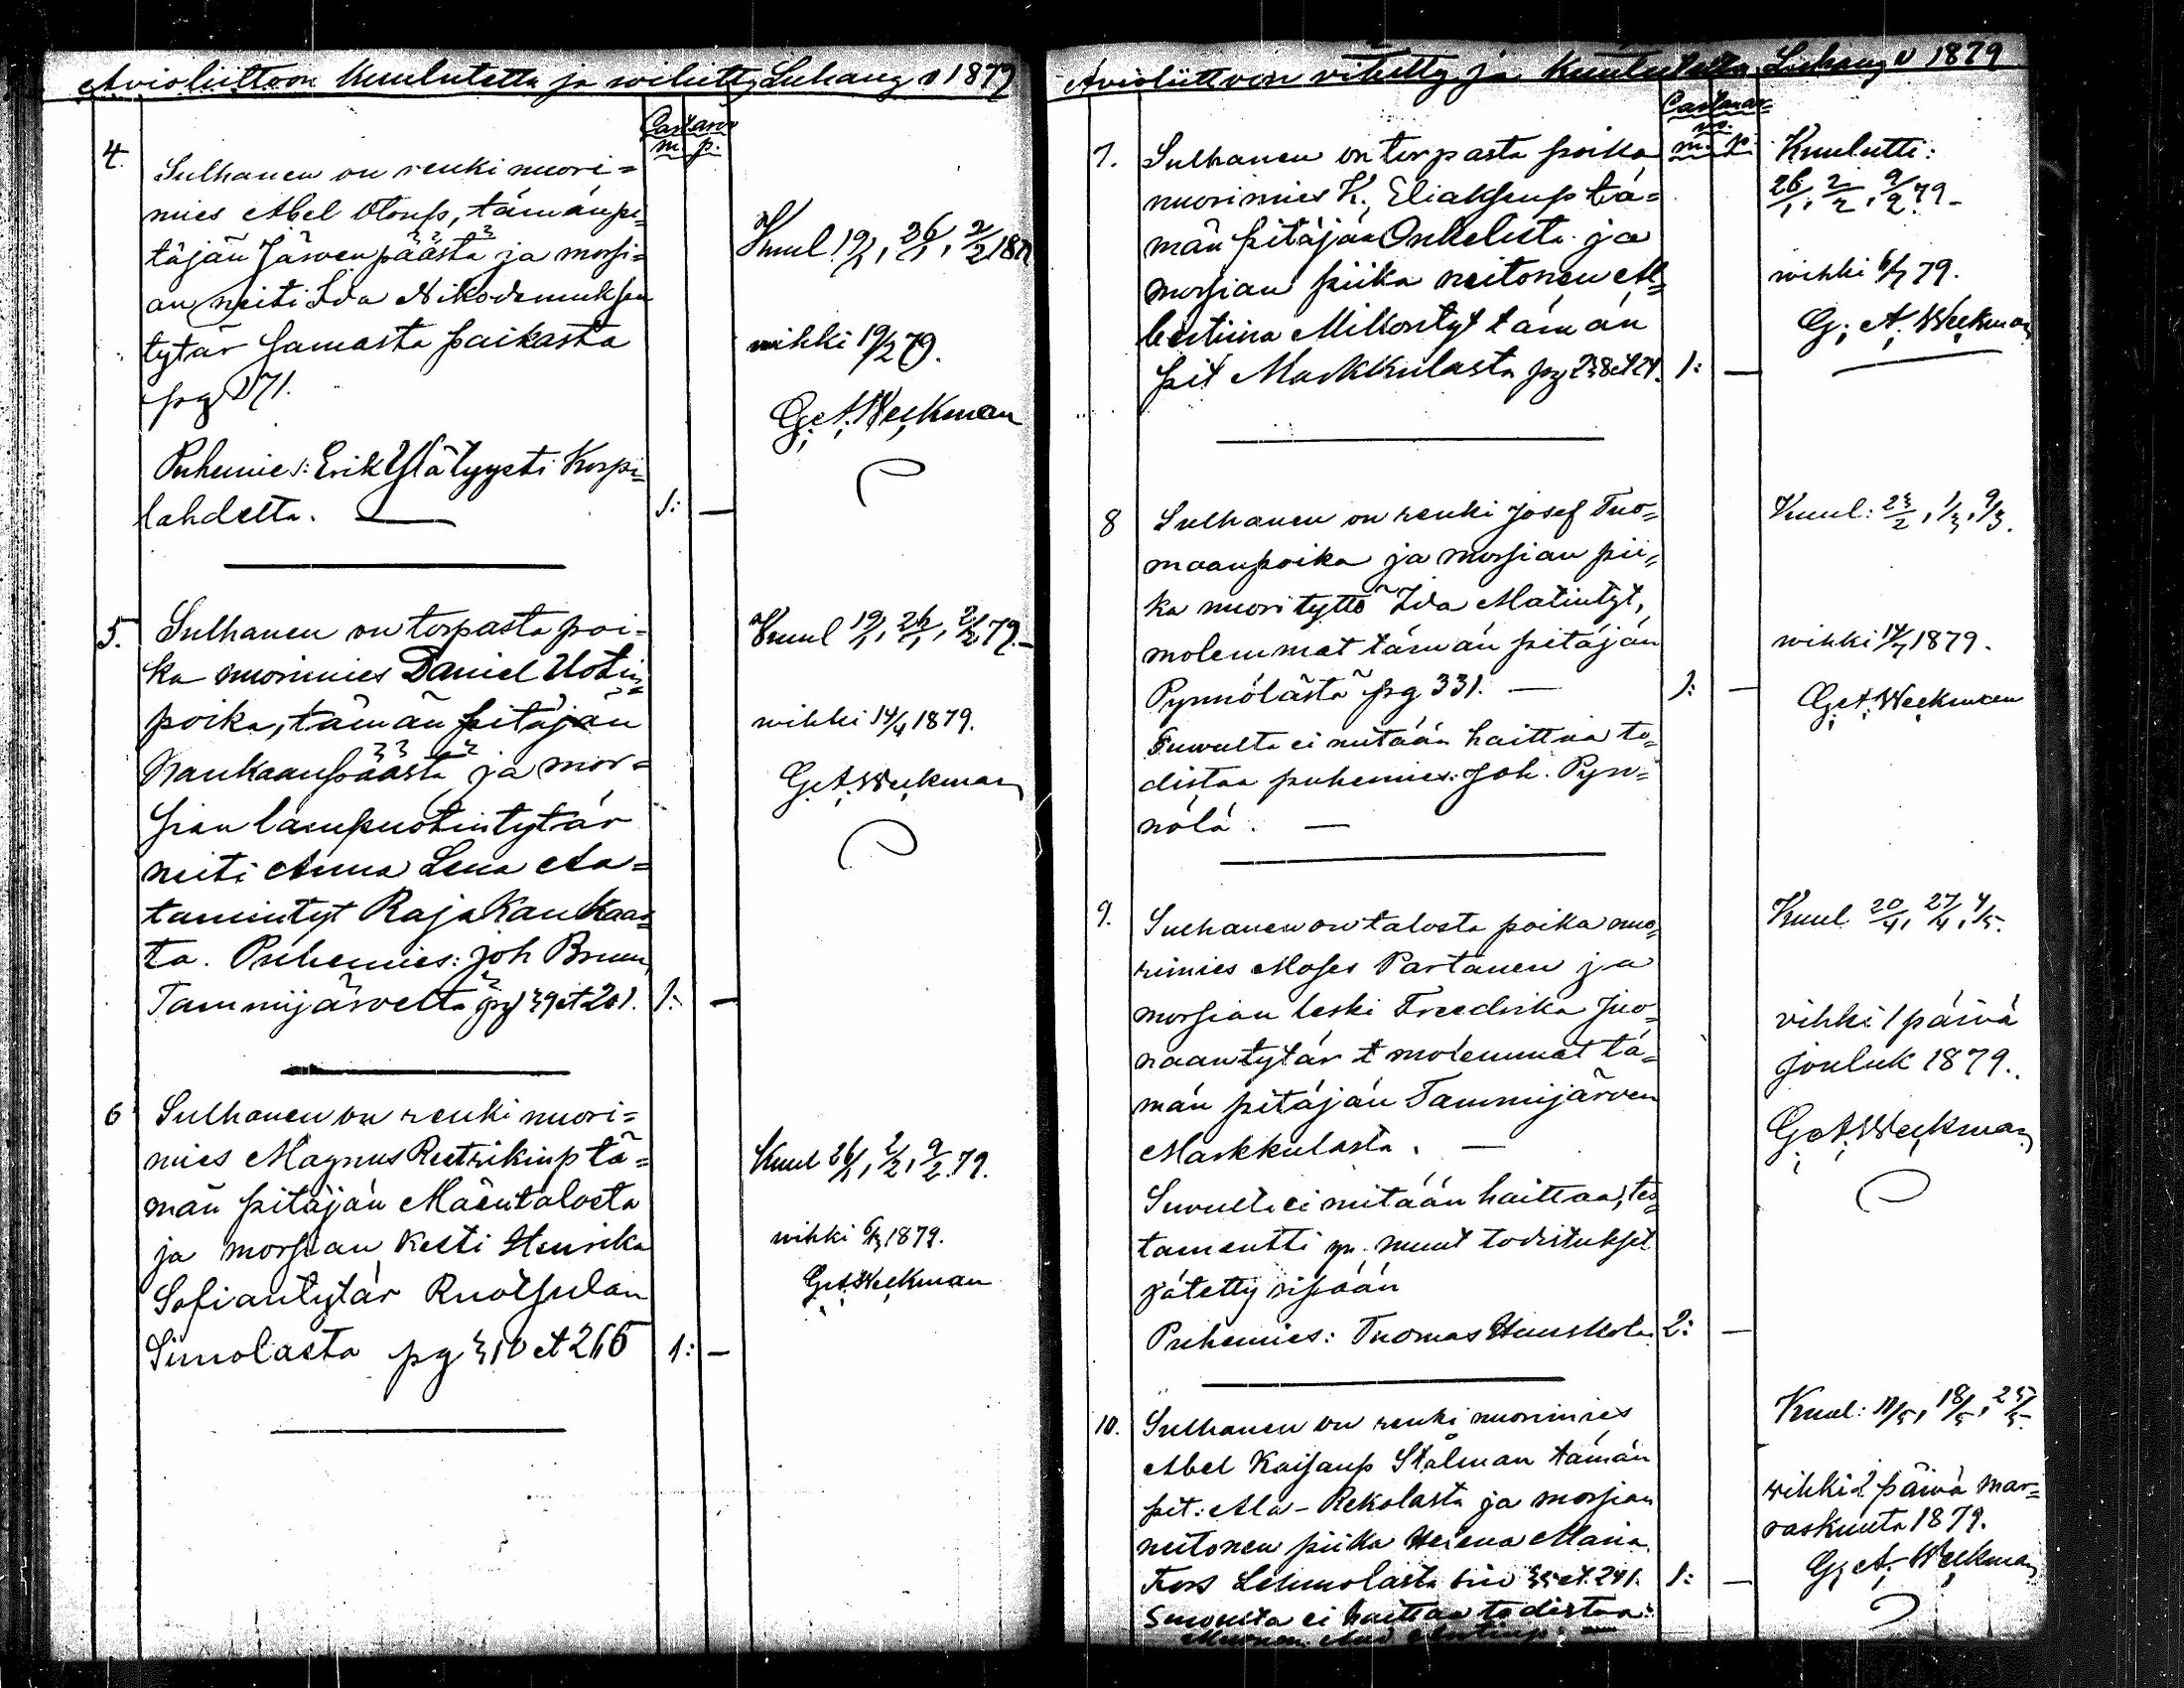 Avioliittoon Kuulutettu ja wihitty Luhang v 1879
Castaros
m. p.
4.
Sulhanen on renki nuori=
mies Abel Otonp, tämän pi=
täjän Järvenpäästä ja morsi=
an neiti Ida Nikodemuksen
tytär samasta paikasta
pg 271.
Puhemies: Erik Ylätyysti Korpi=
lahdelta. — 1: —
Kuul 19/1, 26/1, 2/2 187
wihki 19/2 79.
G. A. Weckman
5.
Sulhanen on torpasta poi-
ka nuorimies Daniel Uotin
poika, tämän pitäjän
Haukaanpäästä ja mor=
sian lampuotintytär
neiti Anna Lena Aa=
tamintyt Raja Kankaas=
ta. Puhemies: Joh Bruun
Tammijärveltä pg 39 et 201. 1: —
Kuul 19/1, 26/1, 2/2 79.—
wihki 14/4 1879.
G. A. Weckman
6
Sulhanen on renki nuori=
mies Magnus Reetrikinp tä=
män pitäjän Mäentalosta
ja morsian Kesti Henrika
Sofiantytär Ruotsulan
Simolasta pg 310 et 266 1: —
Kuul 26/1, 2/2, 9/2 79.
wihki 6/3 1879.
G. A. Weckman
Avioliittoon vihitty ja Kuulutettu Luhang v 1879
Castaros=
m. p.
7.
Sulhanen on torpasta poika
nuorimies K. Eliaksenp tä=
män pitäjän Onkelista ja
morsian piika neitonen Al=
bertiina Mikontyt tämän
pit Markkulasta pg 238 et 24. 1: —
Kuulutti:
26/1, 2/2, 9/2 79—
wihki 6/7 79.
G. A. Weckman
8
Sulhanen on renki Josef Tuo=
maanpoika ja morsian pii=
ka nuori tyttö Ida Matintyt,
molemmat tämän pitäjän
Pynnölästä pg 331. — 1: —
Suvulta ei mitään haittaa to=
distaa puhemies: Joh. Pyn=
nölä. —
Kuul: 23/2, 1/3, 9/3.
wihki 14/7 1879.
G. A. Weckman
9.
Sulhanen on talosta poika nuo=
rimies Moses Partanen ja
morsian leski Freedrika Juo=
naantytär t molemmat tä=
män pitäjän Tammijärven
Markkulasta. —
Suvulta ei mitään haittaa, tes=
tamentti ym. muut todistukset
jätetty ripään
Puhemies: Tuomas Hauskola 2: —
Kuul 20/4, 27/4, 4/5.
vihki 1 päivä
jouluk 1879.
G. A. Weckman
10.
Sulhanen on renki nuorimies
Abel Kaisanp Stålman tämän
pit: Ala-Rekolasta ja morsian
neitonen piika Helena Maria
Fors Lehmolasta siv 35 et. 241. 1: —
Suvulta ei haittaa todistaa:
Kuul: 11/5, 18/5, 25/5.
wihki 2 päivä mar=
raskuuta 1879.
G. A. Weckman